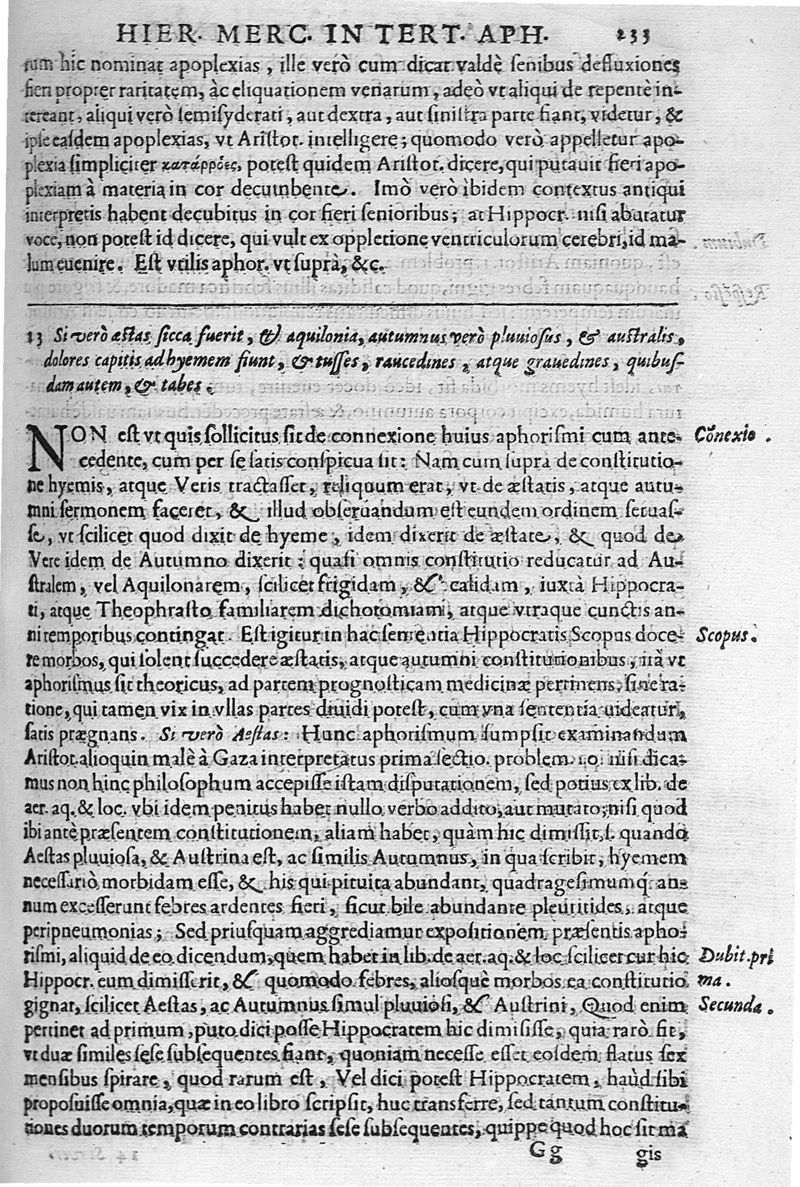 HIER. MERC. IN TERT. APH. 233
rum hic nominat apoplexias, ille verò cum dicat valdè senibus defluxiones
fieri propter raritatem, àc eliquationem venarum, adeò vt aliqui de repentè in-
tereant, aliqui verò semisyderati, aut dextra, aut sinistra parte fiant, videtur, &
ipse easdem apoplexias, vt Aristot. intelligere; quomodo verò appelletur apo-
plexia simpliciter κατάρροες, potest quidem Aristot. dicere, qui putauit fieri apo-
plexiam à materia in cor decumbente. Imò verò ibidem contextus antiqui
interpretis habent decubitus in cor fieri senioribus; at Hippocr. nisi abutatur
voce, non potest id dicere, qui vult ex oppletione ventriculorum cerebri, id ma-
lum euenire. Est vtilis aphor. vt suprà, &c.
13 Si verò æstas sicca fuerit, & aquilonia, autumnus verò pluuiosus, & australis,
dolores capitis ad hyemem fiunt, & tusses, raucedines, atque grauedines, quibus-
dam autem, & tabes.
NON est vt quis sollicitus sit de connexione huius aphorismi cum ante- Cõnexio.
cedente, cum per se satis conspicua sit: Nam cum supra de constitutio-
ne hyemis, atque Veris tractasset, reliquum erat, vt de æstatis, atque autu-
mni sermonem faceret, & illud obseruandum est eundem ordinem seruas-
se, vt scilicet quod dixit de hyeme, idem dixerit de æstate, & quod de
Vere idem de Autumno dixerit: quasi omnis constitutio reducatur ad Au-
stralem, vel Aquilonarem, scilicet frigidam, & calidam, iuxtà Hippocra-
ti, atque Theophrasto familiarem dichotomiam, atque vtraque cunctis an-
ni temporibus contingat. Est igitur in hac sententia Hippocratis Scopus doce- Scopus.
re morbos, qui solent succedere æstatis, atque autumni constitutionibus, ità vt
aphorismus sit theoricus, ad partem prognosticam medicinæ pertinens, sine ra-
tione, qui tamen vix in vllas partes diuidi potest, cum vna sententia uideatur,
satis prægnans. Si verò Aestas: Hunc aphorismum sumpsit examinandum
Aristot. alioquin malè à Gaza interpretatus prima sectio. problem. 10. nisi dica-
mus non hinc philosophum accepisse istam disputationem, sed potius ex lib. de
aer. aq. & loc. vbi idem penitus habet nullo verbo addito, aut mutato; nisi quod
ibi antè præsentem constitutionem, aliam habet, quàm hic dimissit, s. quando
Aestas pluuiosa, & Austrina est, ac similis Autumnus, in qua scribit, hyemem
necessariò morbidam esse, & his qui pituita abundant, quadragesimumq; an-
num excesserunt febres ardentes fieri, sicut bile abundante pleuritides, atque
peripneumonias; Sed priusquam aggrediamur expositionem præsentis apho-
rismi, aliquid de eo dicendum, quem habet in lib. de aer. aq. & loc. scilicet cur hic Dubit. pri
Hippocr. eum dimisserit, & quomodo febres, aliosquè morbos ea constitutio ma.
gignat, scilicet Aestas, ac Autumnus simul pluuiosi, & Austrini, Quod enim Secunda.
pertinet ad primum, puto dici posse Hippocratem hic dimisisse, quia rarò fit,
vt duæ similes sese subsequentes fiant, quoniam necesse esset eosdem flatus sex
mensibus spirare, quod rarum est, Vel dici potest Hippocratem, haùd sibi
proposuisse omnia, quæ in eo libro scripsit, huc transferre, sed tantum constitu-
tiones duorum temporum contrarias sese subsequentes, quippe quod hoc sit ma
Gg gis